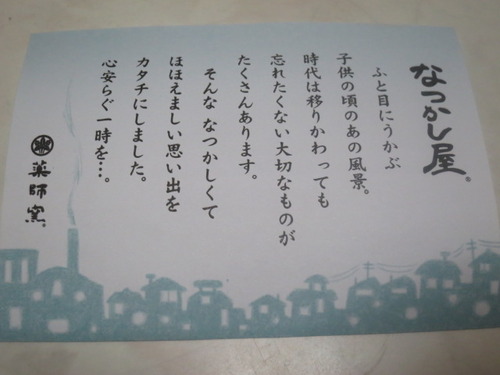 なつかし屋。
ふと目にうかぶ
子供の頃のあの風景。
時代は移りかわっても
忘れたくない大切なものが
たくさんあります。
そんな なつかしくて
ほほえましい思い出を
カタチにしました。
心安らぐ一時を…。
薬師窯。